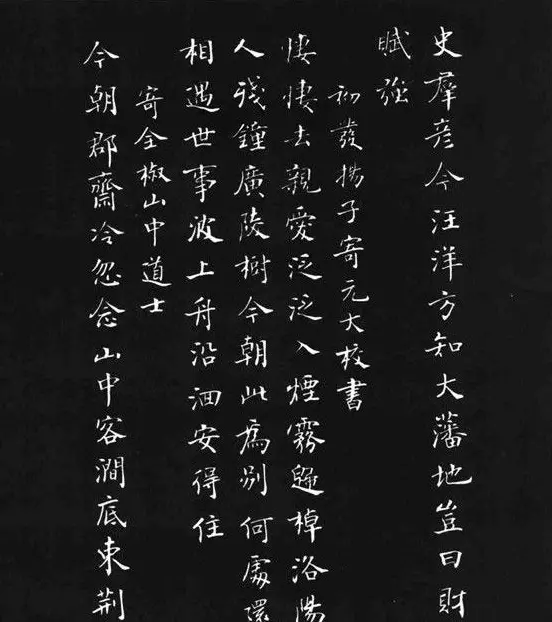 史羣彦今汪洋方知大藩地豈曰財
賦強
初發揚子寄元大校書
悽悽去親愛泛泛入煙霧歸棹洛陽
人殘鐘廣陵樹今朝此爲別何處還
相遇世事波上舟沿洄安得住
寄全椒山中道士
今朝郡齋冷忽念山中客澗底束荊